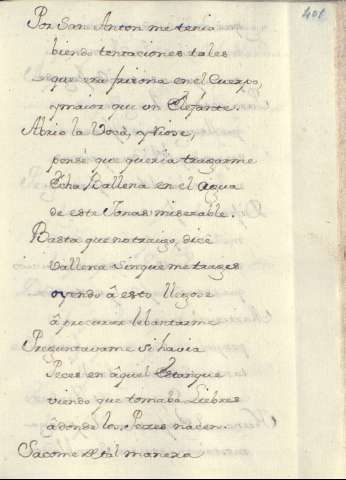 401
Por San Anton me tenia
biendo tentaciones tales
que era persona en el Cuerpo,
y maior que un Elefante.
Abrio la Voca, y Viose,
pensé que queria tragarme
hecha Ballena en el agua
de este Jonas miserable.
Basta que no traigo, dice
vallena sin que me trages
oyendo â esto llegose
â procurar lebantarme
Preguntavame si havia
Peces en âquel estanque
viendo que tomaba Liebres
âdonde los Pezes nacen.
Sacome de tal manera